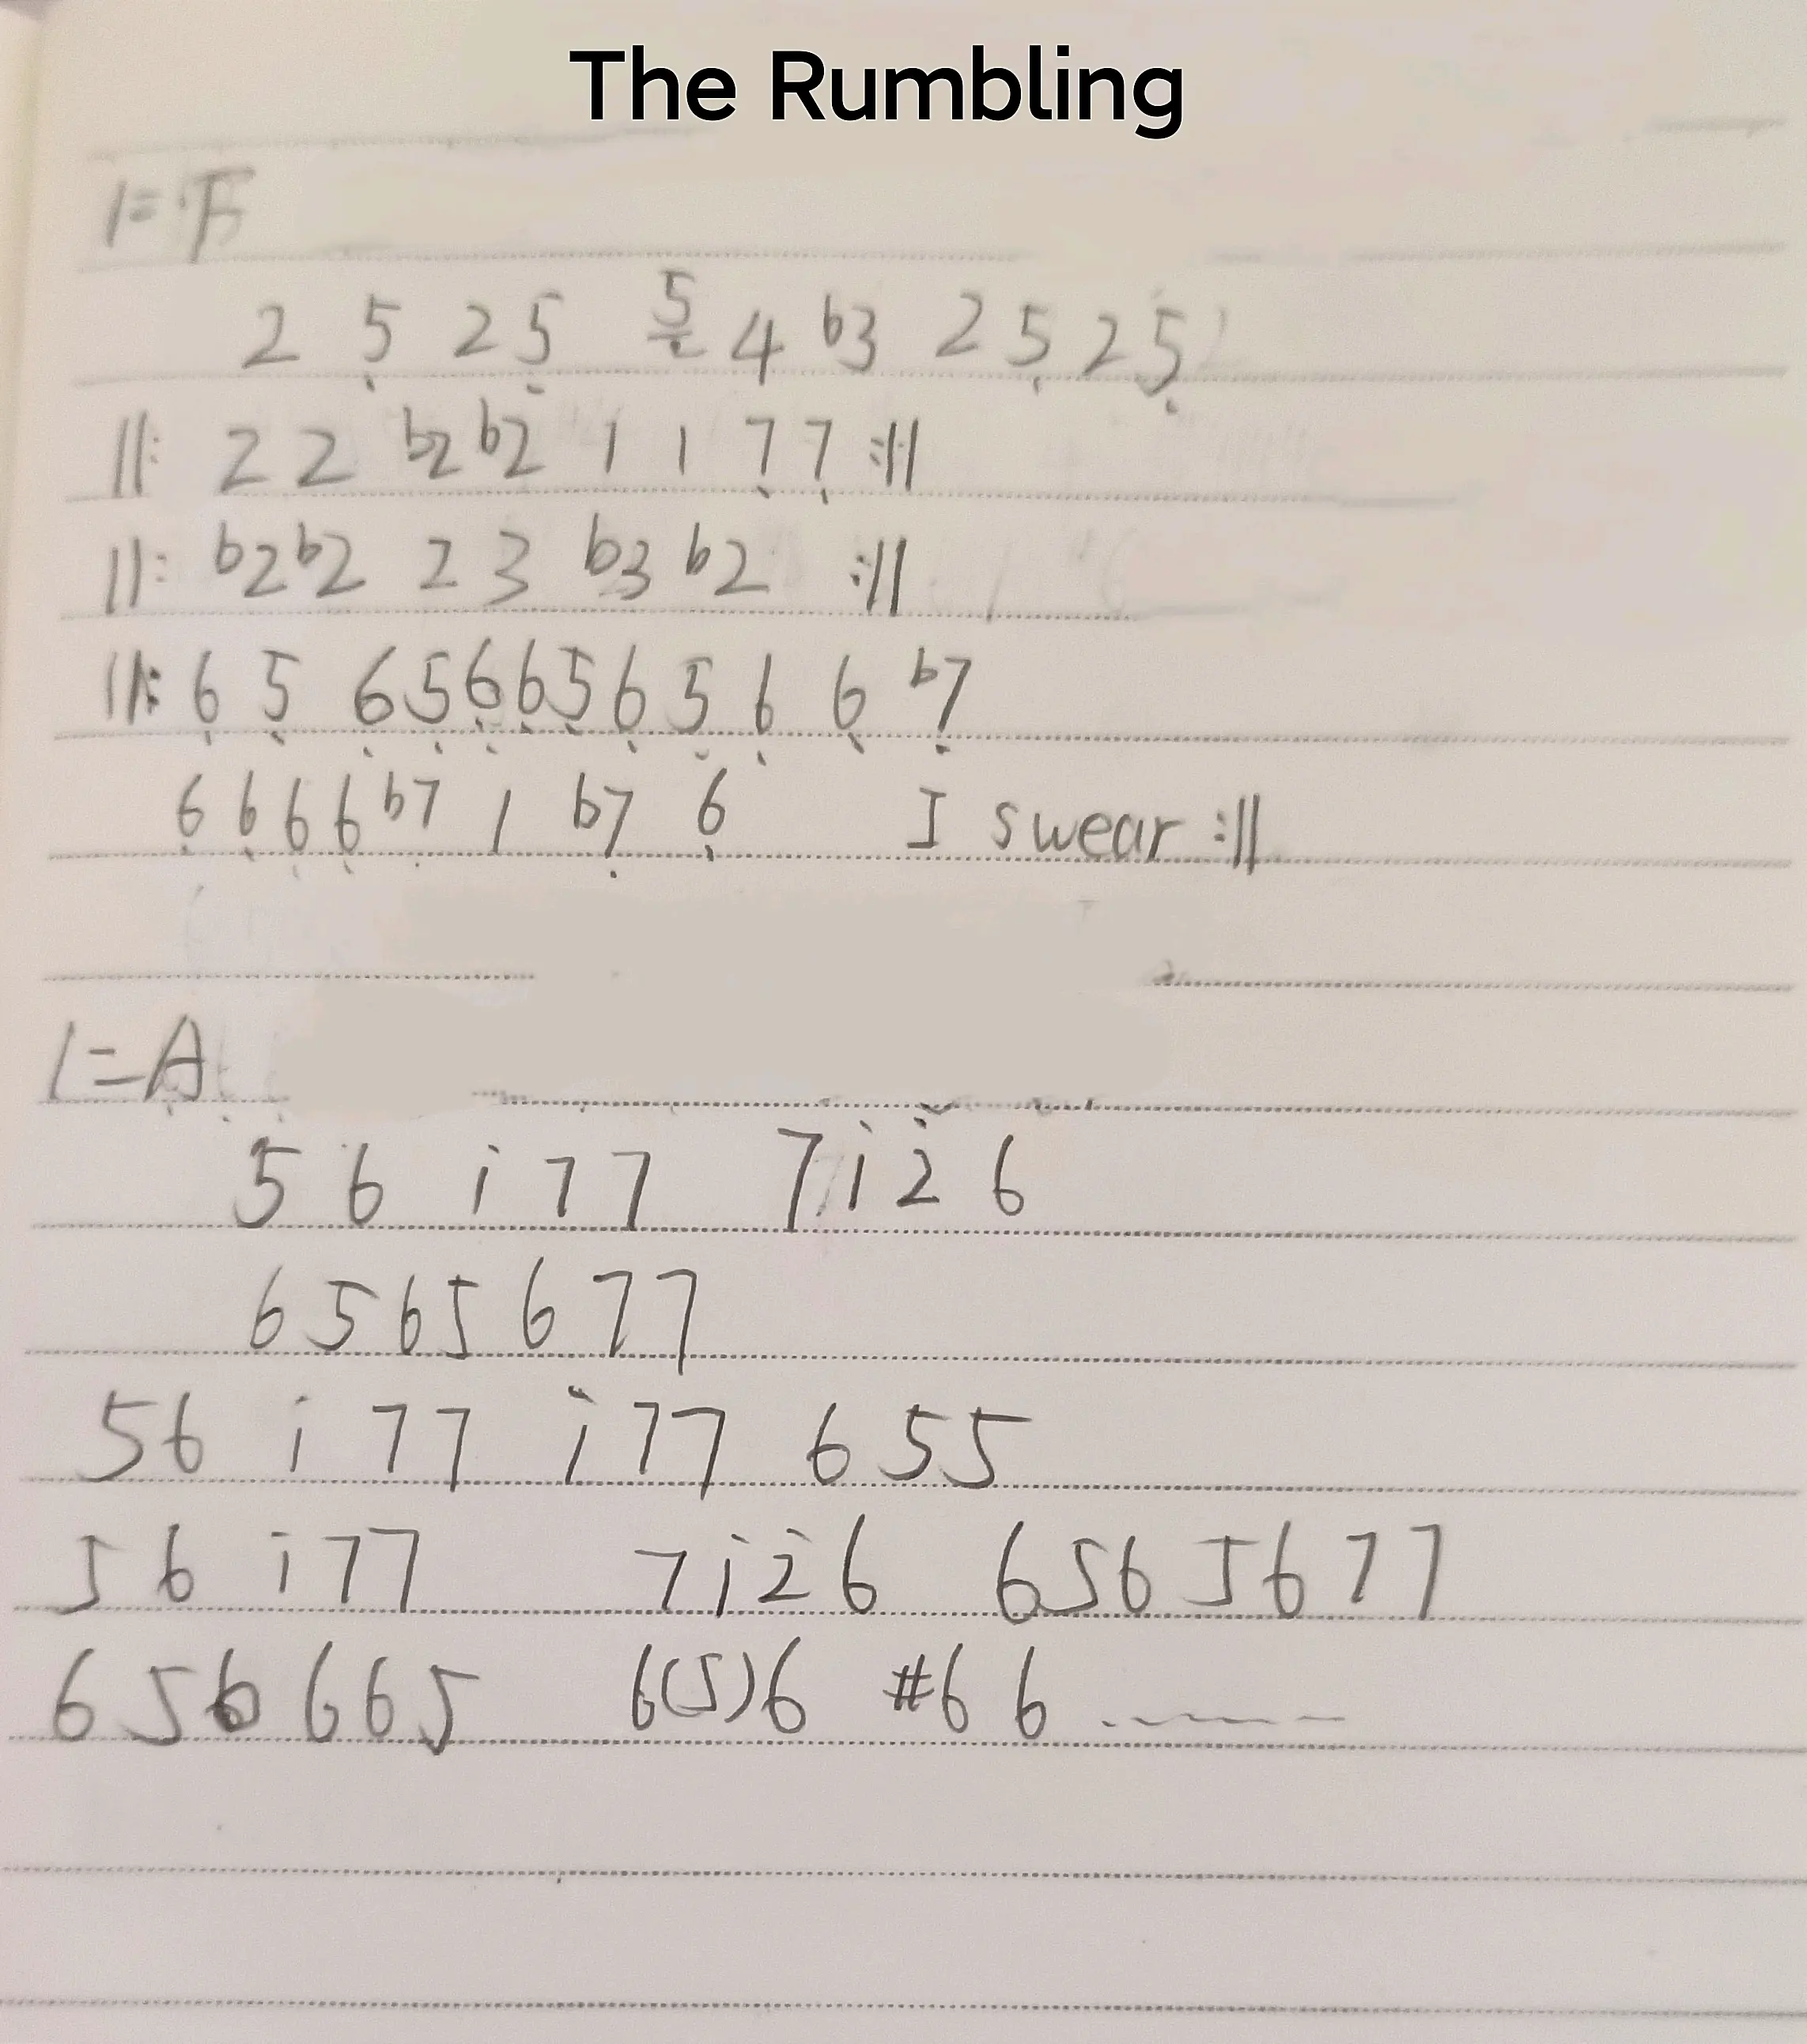 The Rumbling
1=F
2 5̣ 2 5̣ 5̣ 4 b3 2 5̣ 2 5̣
||: 2 2 b2 b2 1 1 7̣ 7̣ :||
||: b2 b2 2 3 b3 b2 :||
||: 6̣ 5̣ 6̣ 5̣ 6̣ 6̣ 5̣ 6̣ 5̣ 6̣ 6̣ b7̣
6̣ 6̣ 6̣ 6̣ b7̣ 1 b7̣ 6̣ I swear :||
1=A
5 6 i 7 7 7 i 2̇ 6
6 5 6 5 6 7 7
5 6 i 7 7 i 7 7 6 5 5
5 6 i 7 7 7 i 2̇ 6 6 5 6 5 6 7 7
6 5 6 6 6 5 6(5)6 #6 6 ......